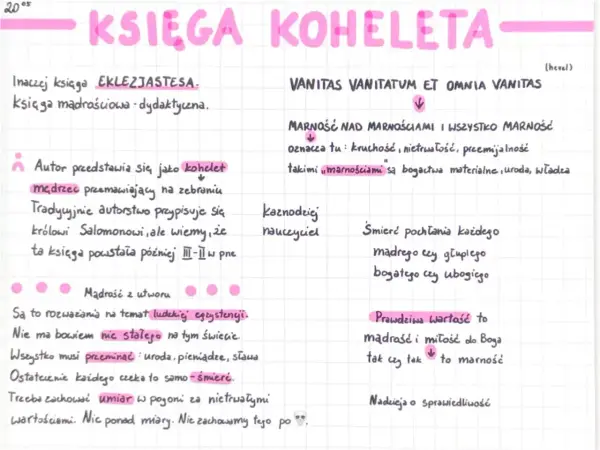 20
KSIĘGA KOHELETA
Inaczej księga EKLEZJASTESA.
Księga mądrościowa - dydaktyczna.
Autor przedstawia się jako kohelet
mędrzec przemawiający na zebraniu
Tradycyjnie autorstwo przypisuje się
królowi Salomonowi, ale wiemy, że
ta księga powstała później III-II w pne
kaznodziej
nauczyciel
Mądrość z utworu
Są to rozważania na temat ludzkiej egzystencji.
Nie ma bowiem nic stałego na tym świecie.
Wszystko musi przeminąć : uroda, pieniądze, sława
Ostatecznie każdego czeka to samo - śmierć.
Trzeba zachować umiar w pogoni za nietrwałymi
wartościami. Nic ponad miarę. Nie zachowamy tego po
(hevel)
VANITAS VANITATUM ET OMNIA VANITAS
MARNOŚĆ NAD MARNOŚCIAMI I WSZYSTKO MARNOŚĆ
oznacza tu : kruchość, nietrwałość, przemijalność
takimi „marnościami" są bogactwa materialne, uroda, władza
Śmierć pochłania każdego
mądrego czy głupiego
bogatego czy ubogiego
Prawdziwa wartość to
mądrość i miłość do Boga
tak czy tak to marność
Nadzieja o sprawiedliwość